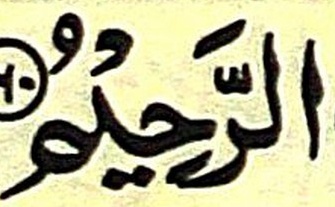 الرَّحِيْمُ ٦٠